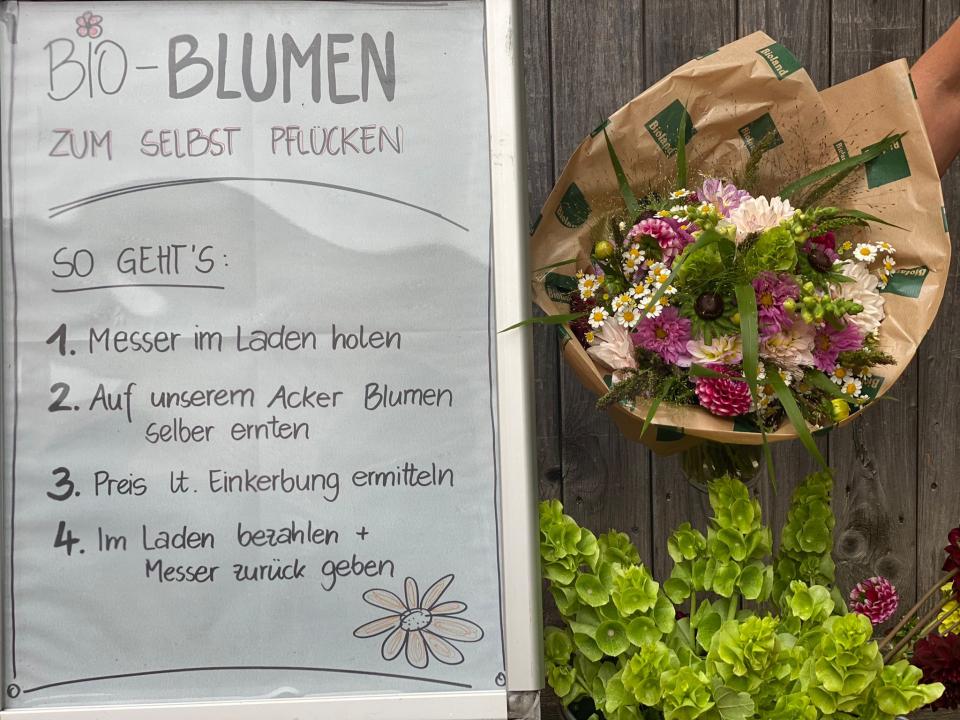 BIO-BLUMEN
ZUM SELBST PFLÜCKEN
SO GEHT'S:
1. Messer im Laden holen
2. Auf unserem Acker Blumen
selber ernten
3. Preis lt. Einkerbung ermitteln
4. Im Laden bezahlen +
Messer zurück geben
Bioland
Bioland
Bioland
Bioland